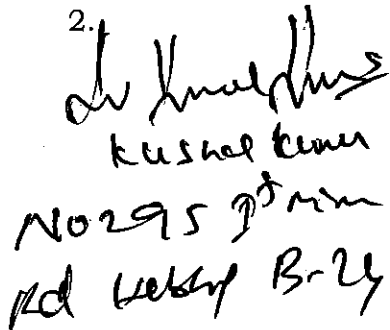 2.
Kushal Kumar
No 295 1st main
Rd Hebbal B-24